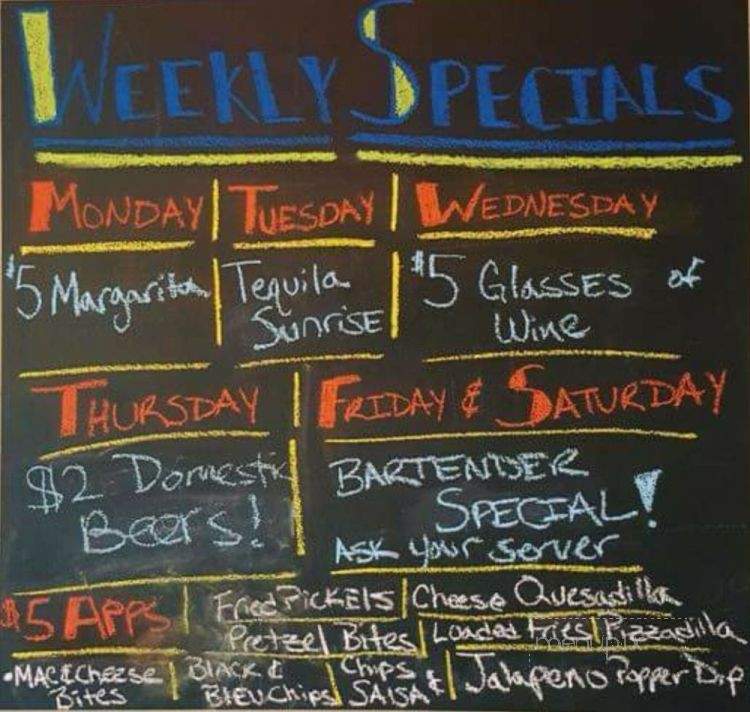 WEEKLY SPECIALS
MONDAY TUESDAY WEDNESDAY
$5 Margarita Tequila Sunrise $5 GLASSES of Wine
THURSDAY FRIDAY & SATURDAY
$2 Domestic Beers! BARTENDER SPECIAL!
ASK your server
$5 APPS Fried PICKElS Cheese Quesadilla
Pretzel Bites Loaded fries Pizzadilla
•MAC&Cheese Bites BLACK & BlEUChips Chips & SAlSA Jalapeno Popper Dip